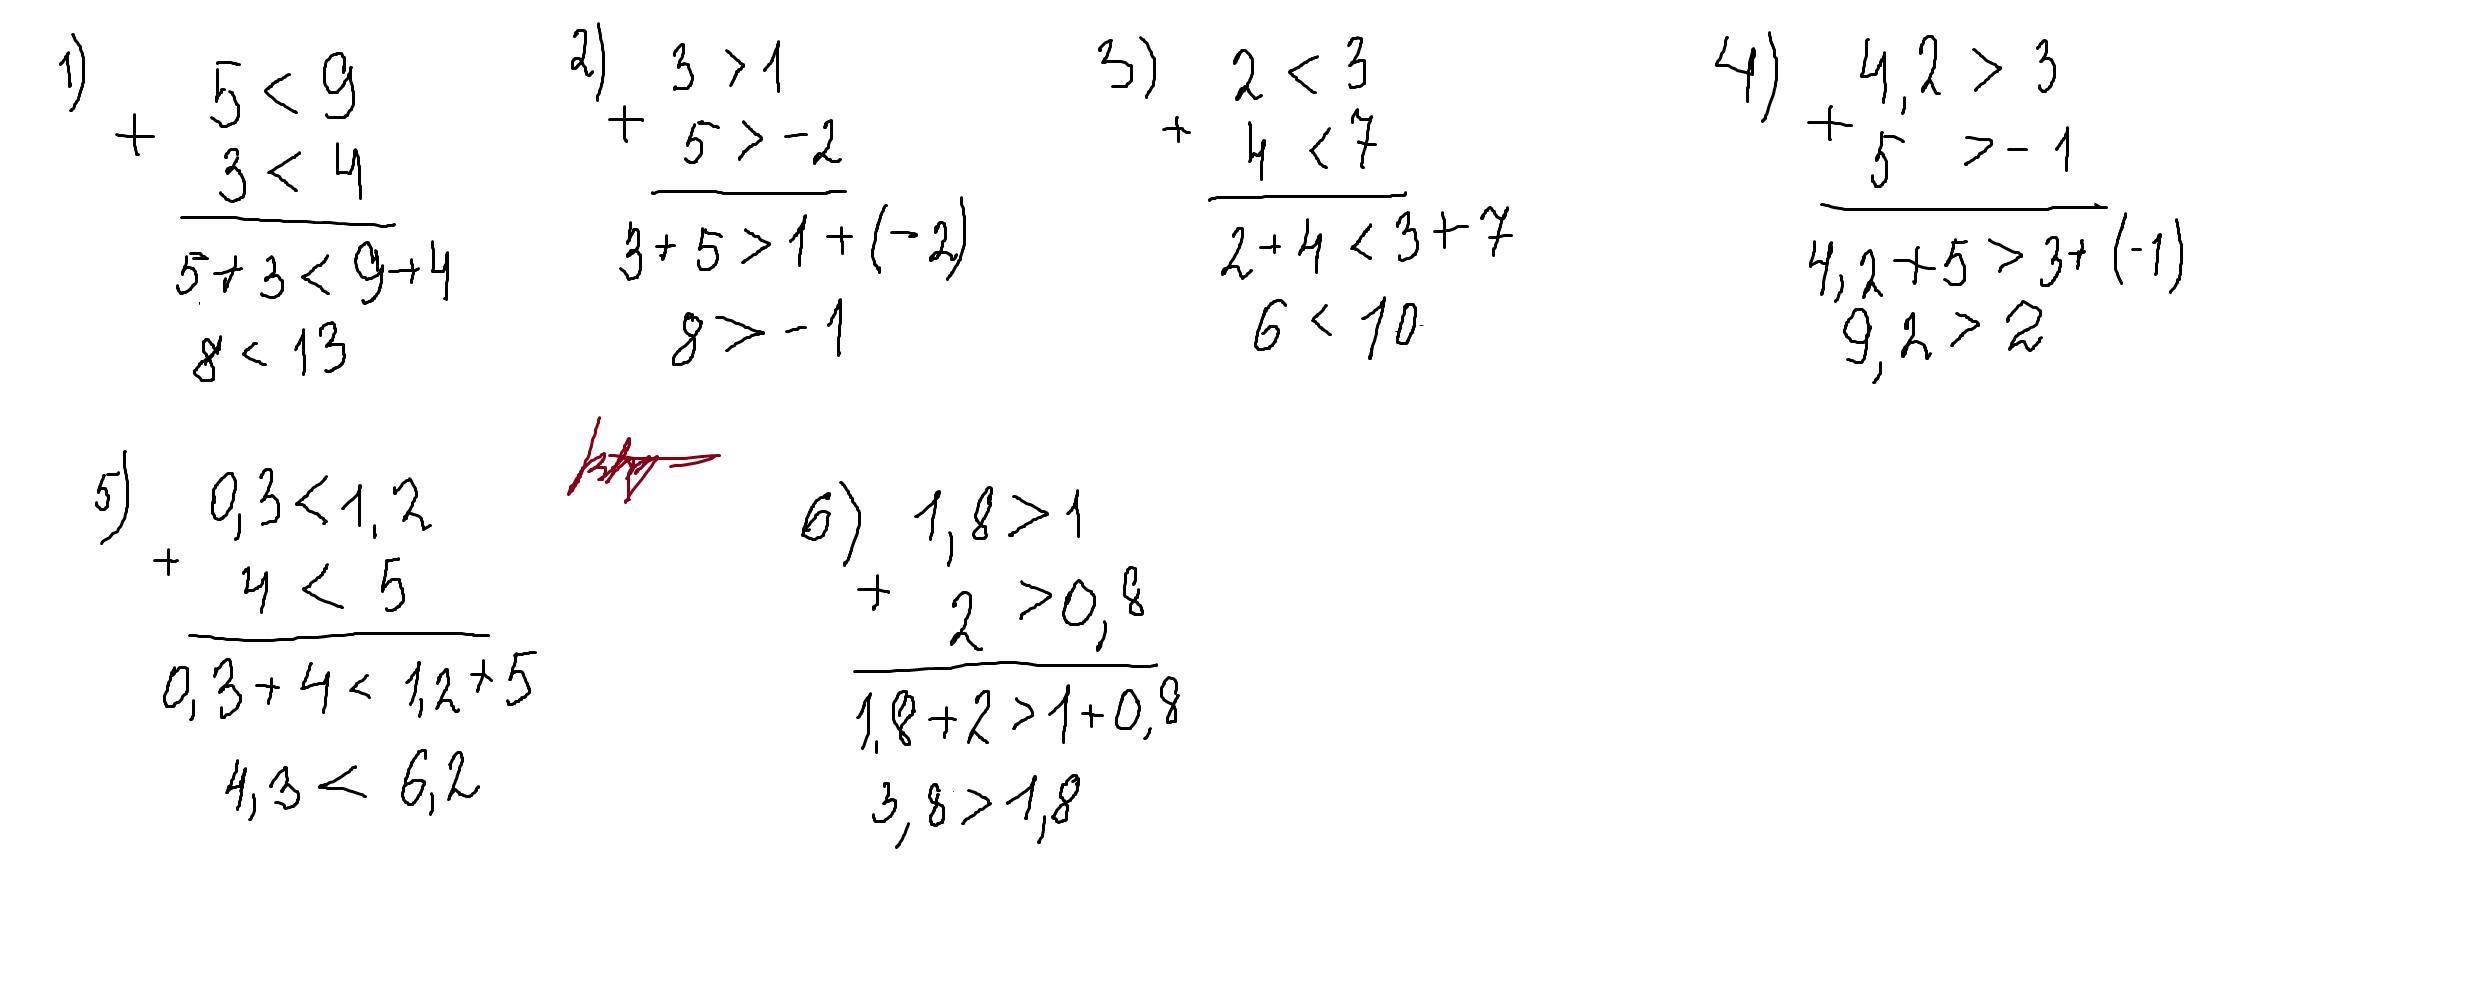 1) 5 < 9
+
3 < 4
5 + 3 < 9 + 4
8 < 13
2) 3 > 1
+
5 > -2
3 + 5 > 1 + (-2)
8 > -1
3) 2 < 3
+
4 < 7
2 + 4 < 3 + 7
6 < 10
4) 4,2 > 3
+
5 > -1
4,2 + 5 > 3 + (-1)
9,2 > 2
5) 0,3 < 1,2
+
4 < 5
0,3 + 4 < 1,2 + 5
4,3 < 6,2
6) 1,8 > 1
+
2 > 0,8
1,8 + 2 > 1 + 0,8
3,8 > 1,8